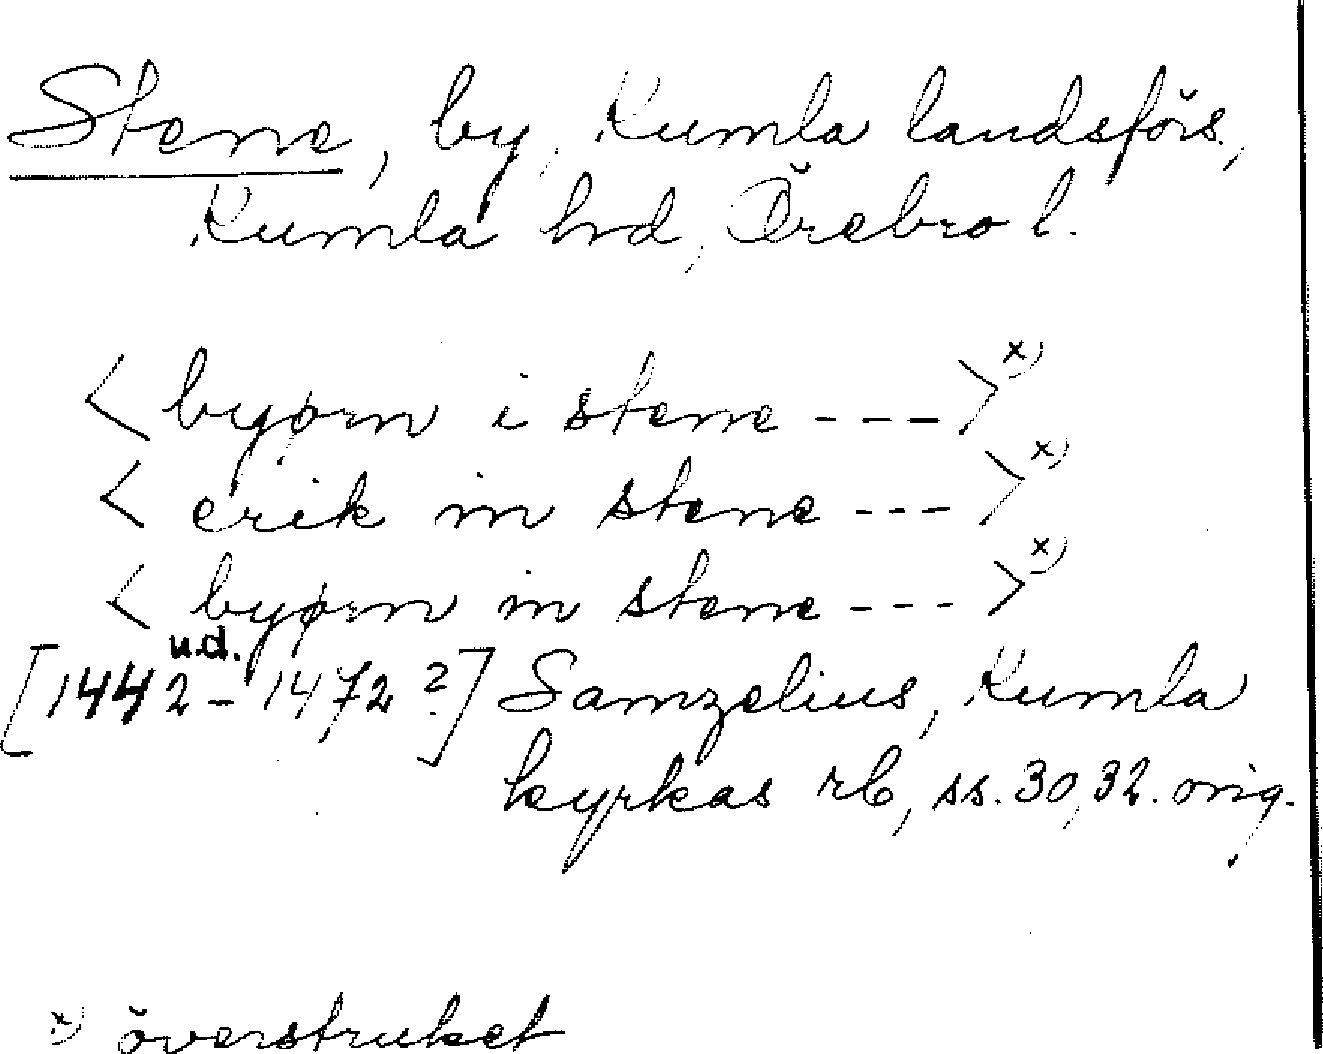 Stene, by, Kumla landsförs.,
Kumla hd, Örebro l.
< byørn i stene --- > x)
< erik in stene --- > x)
< byørn in stene --- > x)
u.d.
[1442 - 1472 ?] Samzelius, Kumla
kyrkas rb, ss. 30, 32. orig.
x) överstruket